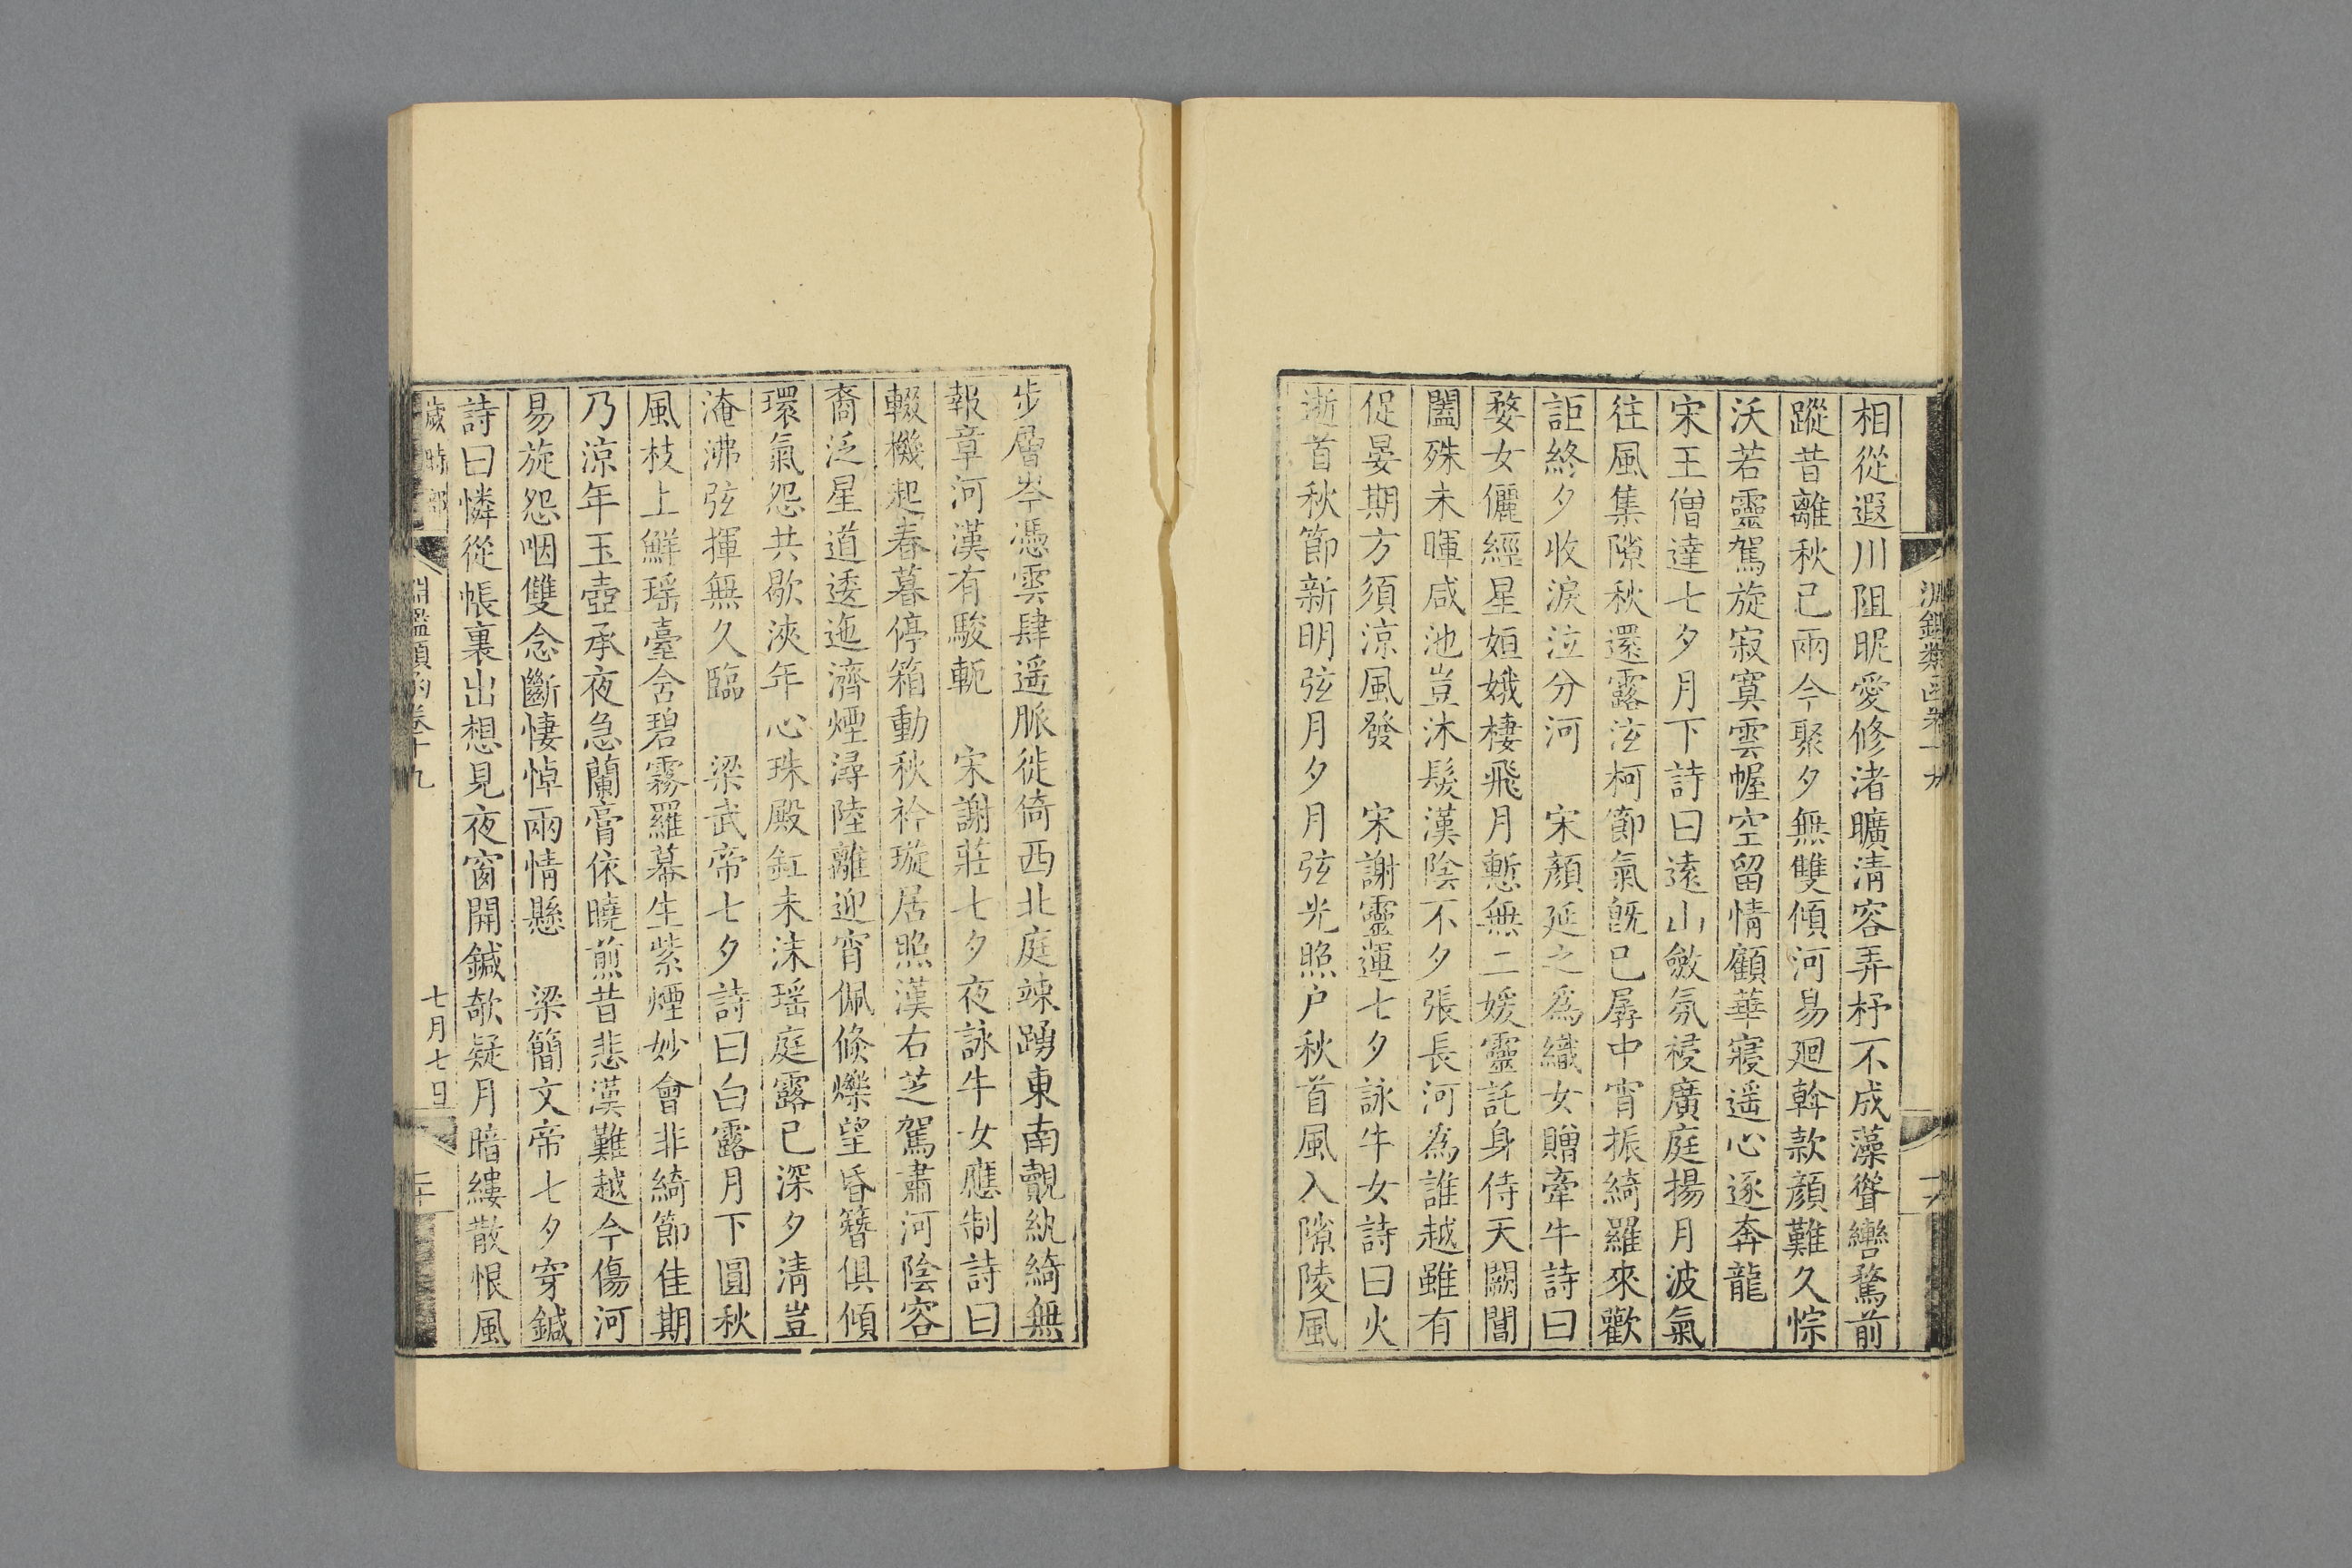 相從遐川阻昵愛修渚曠淸容弄杼不成藻聳轡騖前
蹤昔離秋已兩今聚夕無雙傾河易廻斡款顏難久悰
沃若靈駕旋寂寞雲幄空留情顧華寢遥心逐奔龍
宋王僧達七夕月下詩曰遠山斂氛祲廣庭揚月波氣
往風集隙秋還露泫柯節氣旣已孱中宵振綺羅來歡
詎終夕收淚泣分河　宋顏延之爲織女贈牽牛詩曰
婺女儷經星姮娥棲飛月慙無二媛靈託身侍天闕閶
闔殊未暉咸池豈沐髮漢陰不夕張長河爲誰越雖有
促晏期方須涼風發　宋謝靈運七夕詠牛女詩曰火
逝首秋節新明弦月夕月弦光照戸秋首風入隙陵風
步層岑憑雲肆遥脈徙倚西北庭竦踴東南覿紈綺無
報章河漢有駿軛　宋謝莊七夕夜詠牛女應制詩曰
輟機起春暮停箱動秋衿璇居照漢右芝駕肅河陰容
裔泛星道逶迤濟煙潯陸離迎宵佩倏爍望昏簪俱傾
環氣怨共歇浹年心珠殿釭未沫瑶庭露已深夕淸豈
淹沸弦揮無久臨　梁武帝七夕詩曰白露月下圓秋
風枝上鮮瑶臺含碧霧羅幕生紫煙妙會非綺節佳期
乃涼年玉壺承夜急蘭膏依曉煎昔悲漢難越今傷河
易旋怨咽雙念斷悽悼兩情懸　梁簡文帝七夕穿鍼
詩曰憐從帳裏出想見夜窗開鍼欹疑月暗縷散恨風
歲時部　淵鑑類函卷十九　七月七日　二十